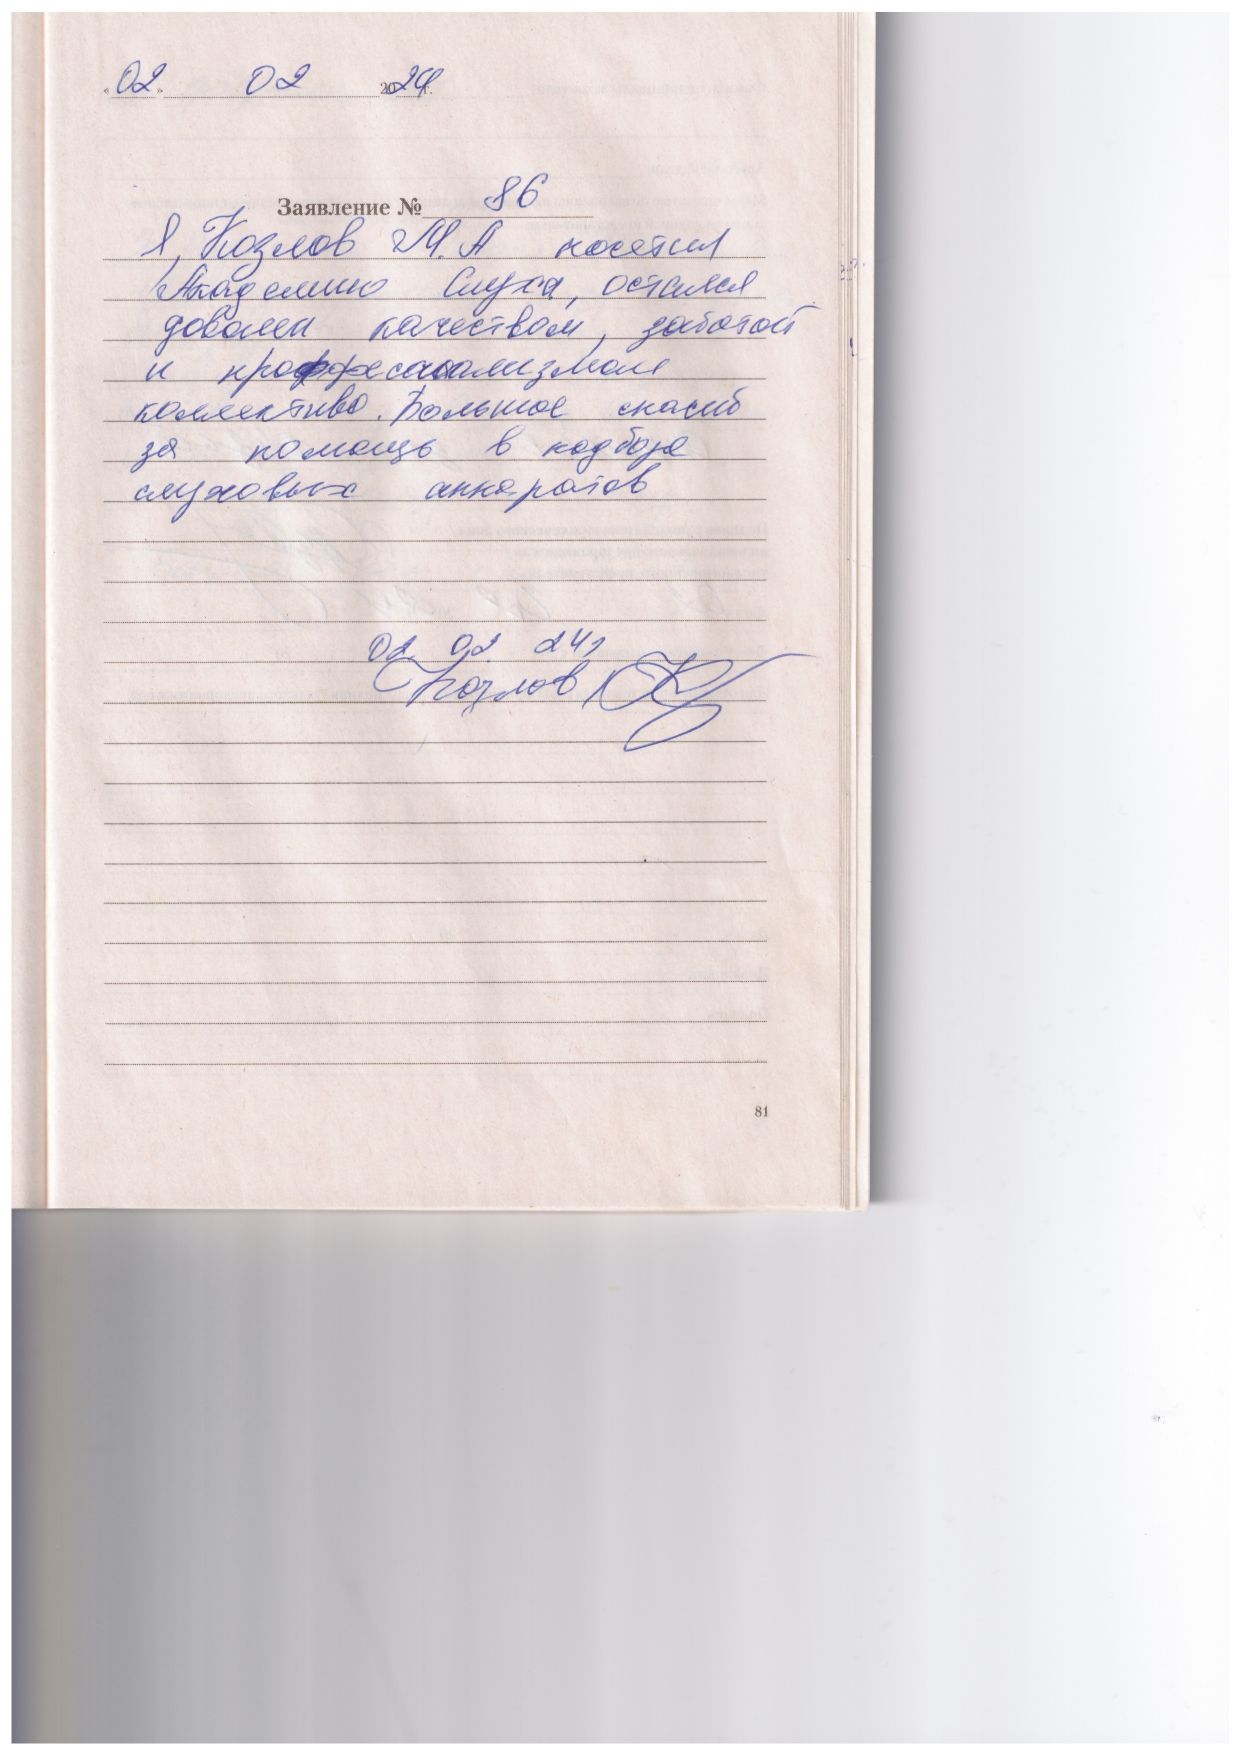 «02» 02 2024 г.
Заявление № 86
Я, Козлов М.А посетил
Академию Слуха, остался
доволен качеством, заботой
и профессионализмом
коллектива. Большое спасиб
за помощь в подборе
слуховых аппаратов
02. 02. 24г
Козлов
81